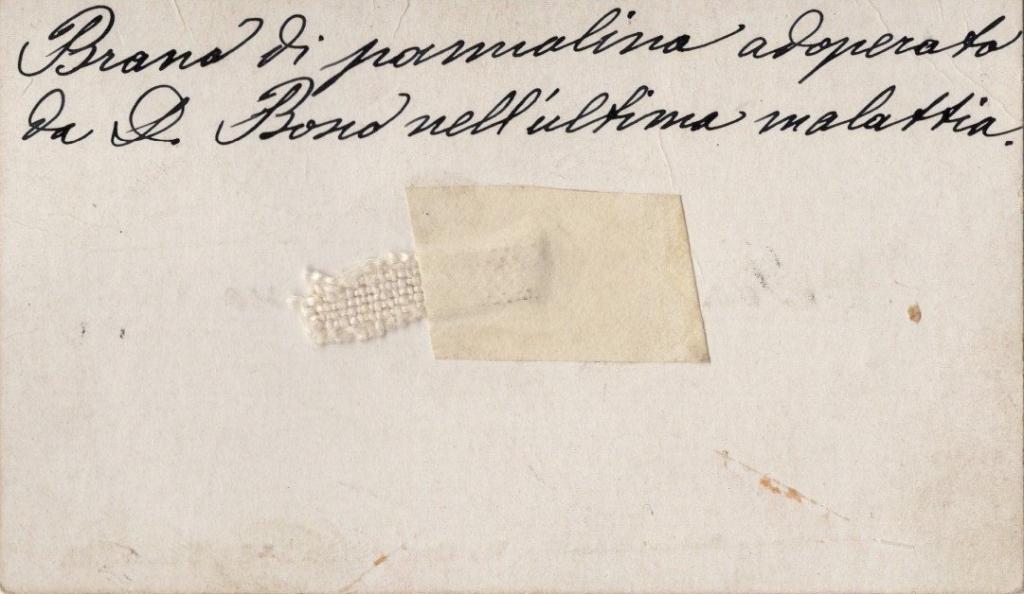 Brano di pannalino adoperato
da D. Bosco nell'ultima malattia.